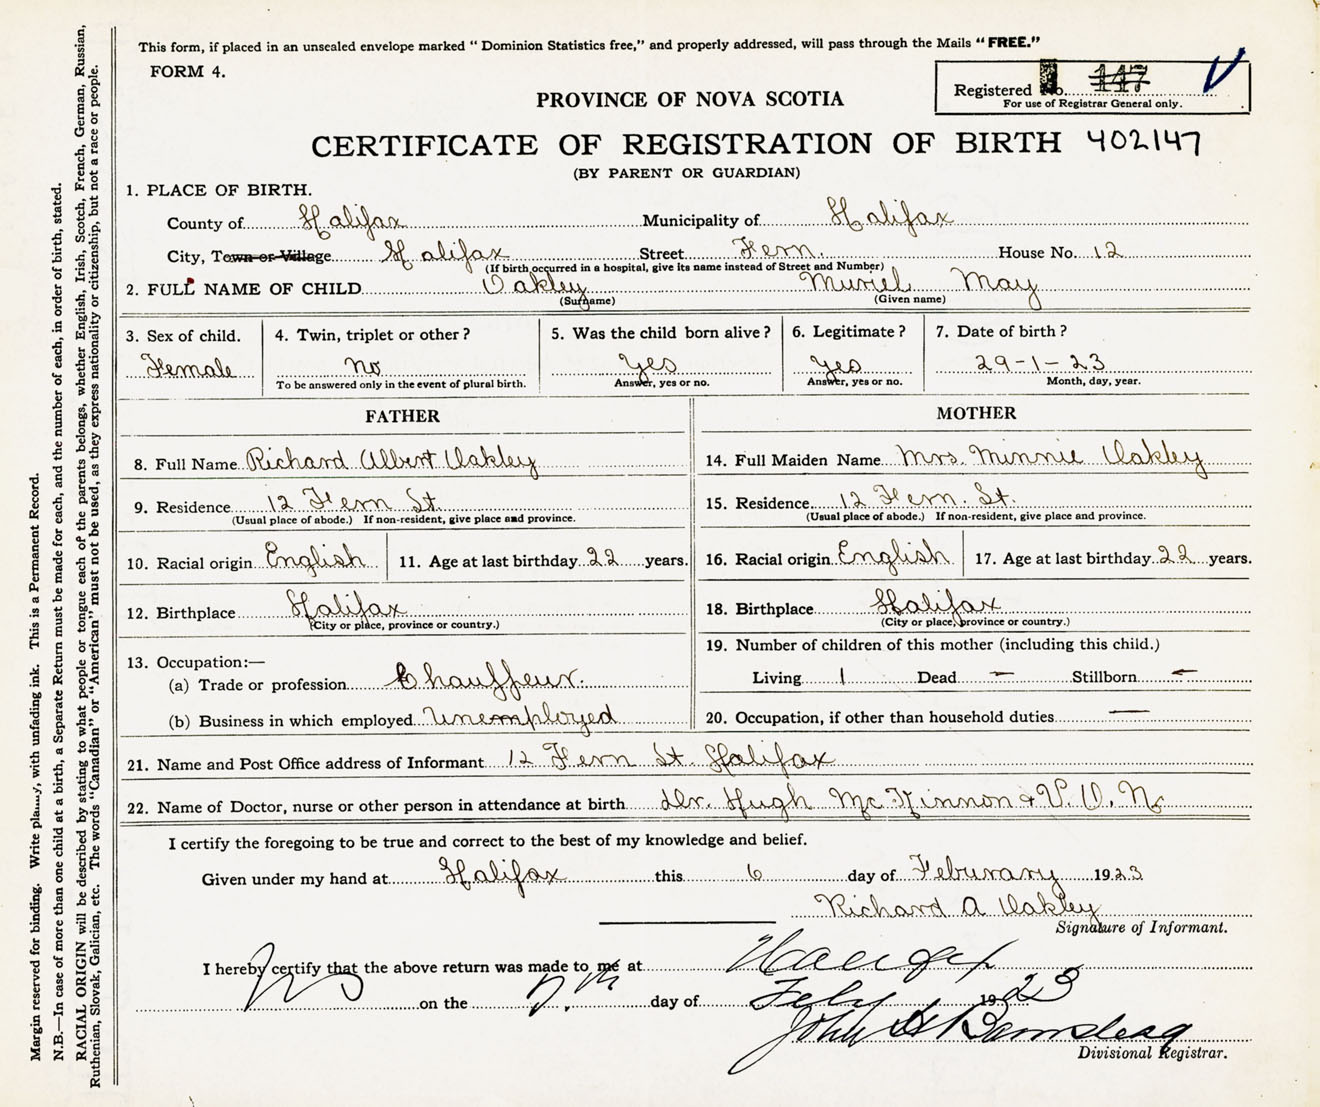 This form, if placed in an unsealed envelope marked "Dominion Statistics free," and properly addressed, will pass through the Mails "FREE."
FORM 4.
Registered No. 147
For use of Registrar General only.
PROVINCE OF NOVA SCOTIA
CERTIFICATE OF REGISTRATION OF BIRTH 402147
(BY PARENT OR GUARDIAN)
1. PLACE OF BIRTH.
County of Halifax Municipality of Halifax
City, Town or Village Halifax Street Fern. House No. 12
(If birth occurred in a hospital, give its name instead of Street and Number)
2. FULL NAME OF CHILD Oakley Muriel May
(Surname) (Given name)
3. Sex of child. 4. Twin, triplet or other? 5. Was the child born alive? 6. Legitimate? 7. Date of birth?
Female No Yes Yes 29-1-23
To be answered only in the event of plural birth. Answer, yes or no. Answer, yes or no. Month, day, year.
FATHER MOTHER
8. Full Name Richard Albert Oakley 14. Full Maiden Name Mrs. Minnie Oakley
9. Residence 12 Fern St. 15. Residence 12 Fern. St.
(Usual place of abode.) If non-resident, give place and province. (Usual place of abode.) If non-resident, give place and province.
10. Racial origin English 11. Age at last birthday 22 years. 16. Racial origin English 17. Age at last birthday 22 years.
12. Birthplace Halifax 18. Birthplace Halifax
(City or place, province or country.) (City or place, province or country.)
19. Number of children of this mother (including this child.)
13. Occupation:—
(a) Trade or profession Chauffeur. Living 1 Dead — Stillborn —
(b) Business in which employed Unemployed 20. Occupation, if other than household duties —
21. Name and Post Office address of Informant 12 Fern St. Halifax
22. Name of Doctor, nurse or other person in attendance at birth Dr. Hugh McKinnon & V. O. N.
I certify the foregoing to be true and correct to the best of my knowledge and belief.
Given under my hand at Halifax this 6 day of Feburary 1923
Richard A Oakley
Signature of Informant.
I hereby certify that the above return was made to me at Halifax
N S on the 7th day of Feby 1923
John H
Divisional Registrar.
Margin reserved for binding. Write plainly, with unfading ink. This is a Permanent Record.
N.B.—In case of more than one child at a birth, a Separate Return must be made for each, and the number of each, in order of birth, stated.
RACIAL ORIGIN will be described by stating to what people or tongue each of the parents belongs, whether English, Irish, Scotch, French, German, Russian,
Ruthenian, Slovak, Galician, etc. The words "Canadian" or "American" must not be used, as they express nationality or citizenship, but not a race or people.